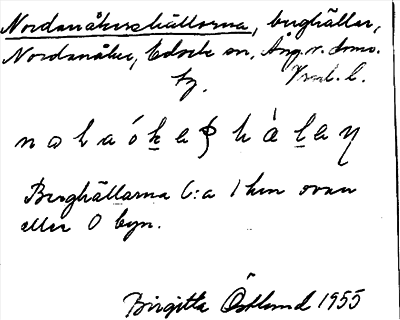 Nordanåkershällarna, berghällar,
Nordanåker, Edsele sn, Ång. v. doms.
tg. Vnrl. l.
Berghällarna C:a 1 km ovan
eller O byn.
Birgitta Östlund 1955